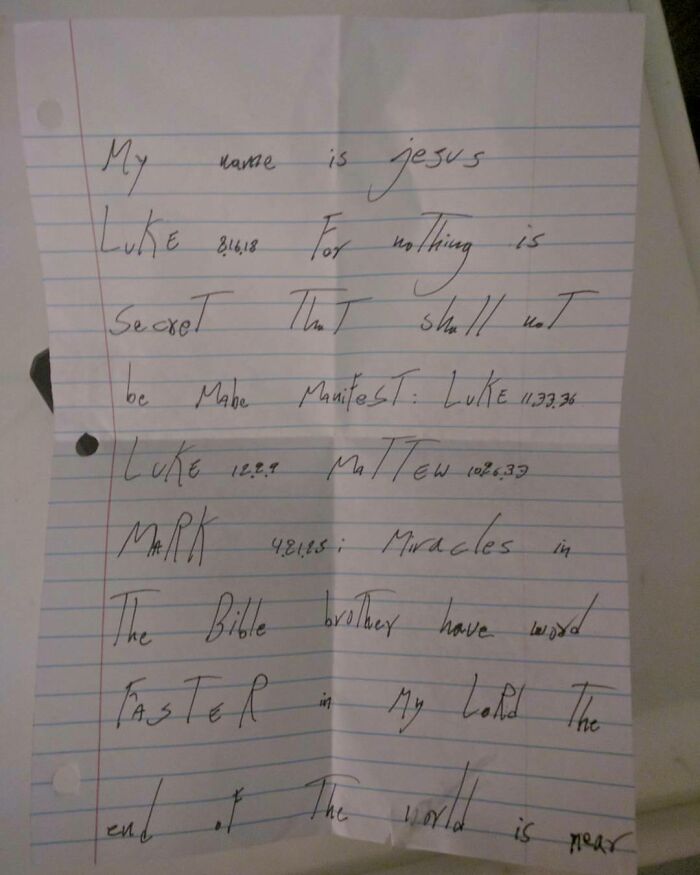 My name is jesus
LUKE 8.16.18 For noThing is
SecreT ThaT shall noT
be Mabe ManiFesT: LUKE 11.33.36
LUKE 12.2.9 MaTTEW 1026.33
MARK 4.21.25: Miracles in
The Bible broTher have word
FASTER in My LoRd The
end of The world is near